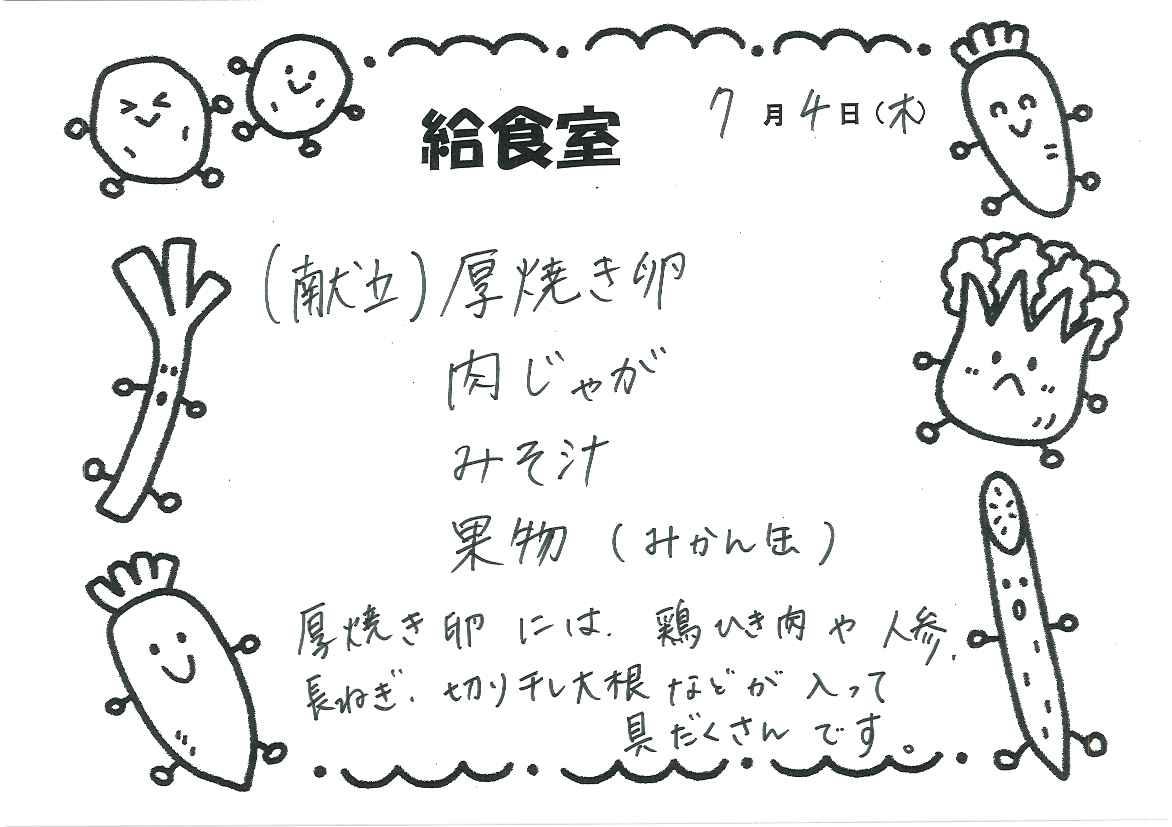 給食室
7月4日(木)
(献立)厚焼き卵
肉じゃが
みそ汁
果物(みかん缶)
厚焼き卵には、鶏ひき肉や人参、
長ねぎ、切り干し大根などが入って
具だくさんです。